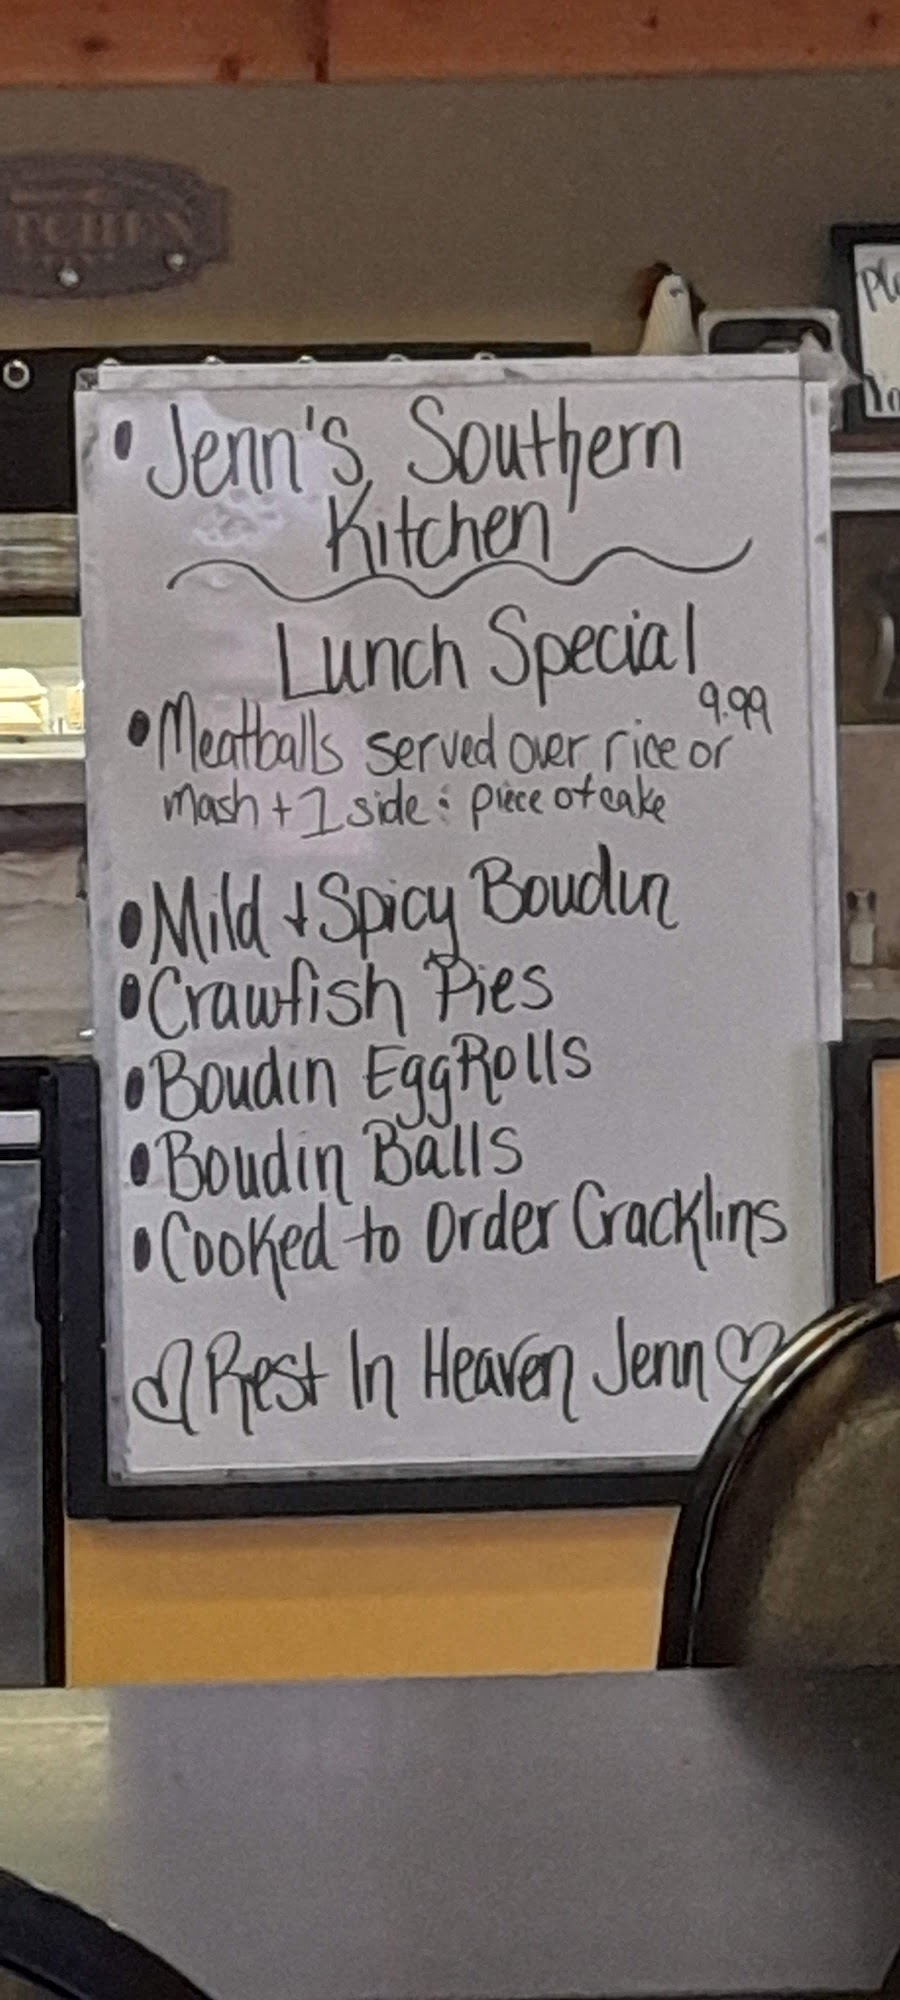 TCHEN
• Jenn's Southern
Kitchen
Lunch Special
9.99
• Meatballs served over rice or
mash + 1 side : piece of cake
• Mild + Spicy Boudin
• Crawfish Pies
• Boudin EggRolls
• Boudin Balls
• Cooked to Order Cracklins
♡ Rest In Heaven Jenn ♡